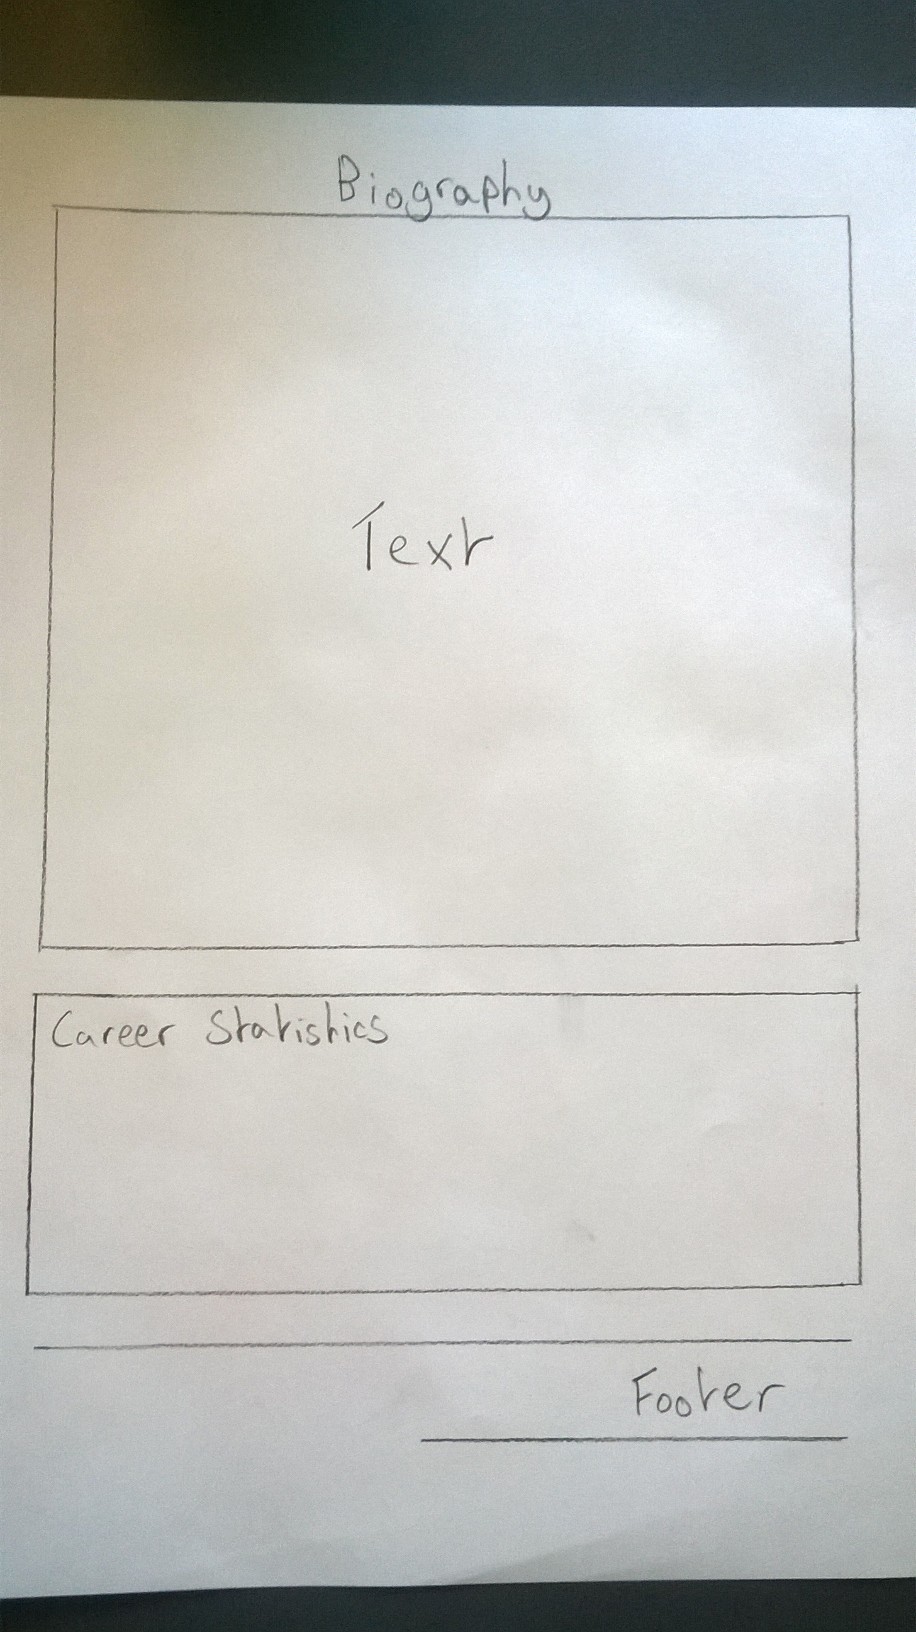 Biography
Text
Career Statistics
Footer